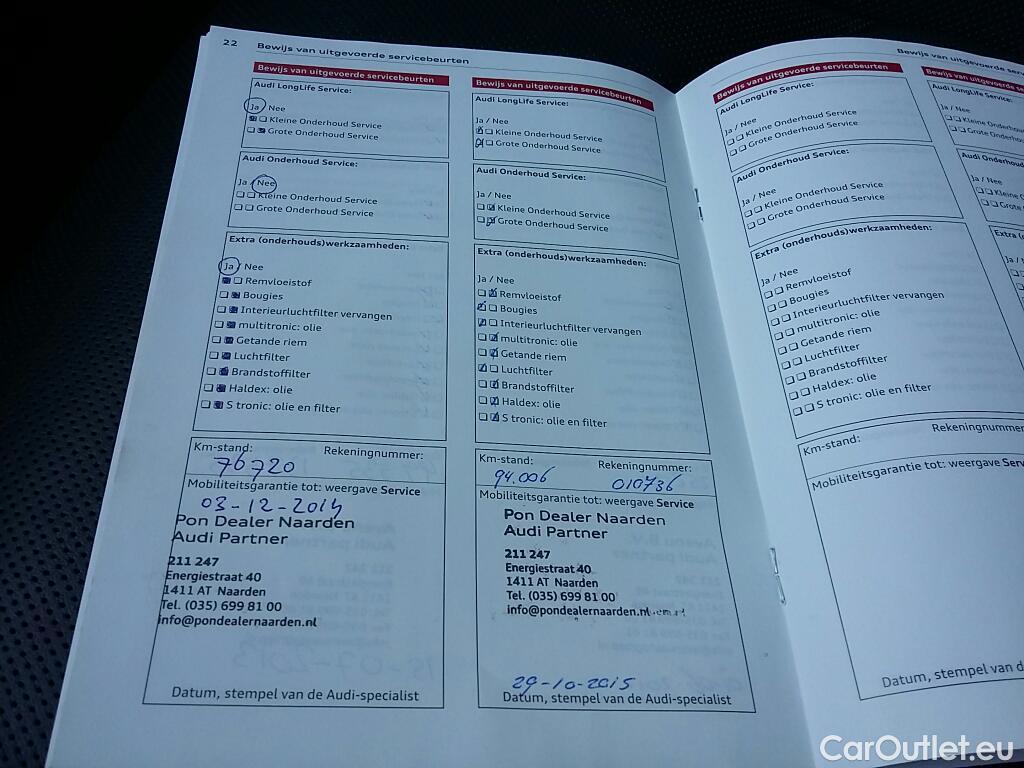 22
Bewijs van uitgevoerde servicebeurten
Bewijs van uitgevoerde servicebeurten
Audi LongLife Service:
Ja / Nee
Kleine Onderhoud Service
Grote Onderhoud Service
Audi Onderhoud Service:
Ja / Nee
Kleine Onderhoud Service
Grote Onderhoud Service
Extra (onderhouds)werkzaamheden:
Ja / Nee
Remvloeistof
Bougies
Interieurluchtfilter vervangen
multitronic: olie
Getande riem
Luchtfilter
Brandstoffilter
Haldex: olie
S tronic: olie en filter
Km-stand: Rekeningnummer:
76720
Mobiliteitsgarantie tot: weergave Service
03-12-2014
Pon Dealer Naarden
Audi Partner
211 247
Energiestraat 40
1411 AT Naarden
Tel. (035) 699 81 00
info@pondealernaarden.nl
Datum, stempel van de Audi-specialist
Bewijs van uitgevoerde servicebeurten
Audi LongLife Service:
Ja / Nee
Kleine Onderhoud Service
Grote Onderhoud Service
Audi Onderhoud Service:
Ja / Nee
Kleine Onderhoud Service
Grote Onderhoud Service
Extra (onderhouds)werkzaamheden:
Ja / Nee
Remvloeistof
Bougies
Interieurluchtfilter vervangen
multitronic: olie
Getande riem
Luchtfilter
Brandstoffilter
Haldex: olie
S tronic: olie en filter
Km-stand: Rekeningnummer:
94.006 010736
Mobiliteitsgarantie tot: weergave Service
Pon Dealer Naarden
Audi Partner
211 247
Energiestraat 40
1411 AT Naarden
Tel. (035) 699 81 00
info@pondealernaarden.nl
29-10-2015
Datum, stempel van de Audi-specialist
Bewijs van uitgevoerde
Bewijs van uitgevoerde servicebeurten
Audi LongLife Service:
Ja / Nee
Kleine Onderhoud Service
Grote Onderhoud Service
Audi Onderhoud Service:
Ja / Nee
Kleine Onderhoud Service
Grote Onderhoud Service
Extra (onderhouds)werkzaamheden:
Ja / Nee
Remvloeistof
Bougies
Interieurluchtfilter vervangen
multitronic: olie
Getande riem
Luchtfilter
Brandstoffilter
Haldex: olie
S tronic: olie en filter
Km-stand: Rekeningnummer:
Mobiliteitsgarantie tot: weergave
Datum, stempel van de
Bewijs van uitgevoerde
Audi LongLife Service:
Ja / Nee
Kleine
Grote
Audi Onderhoud
Ja / Nee
Kleine
Grote
Extra
CarOutlet.eu